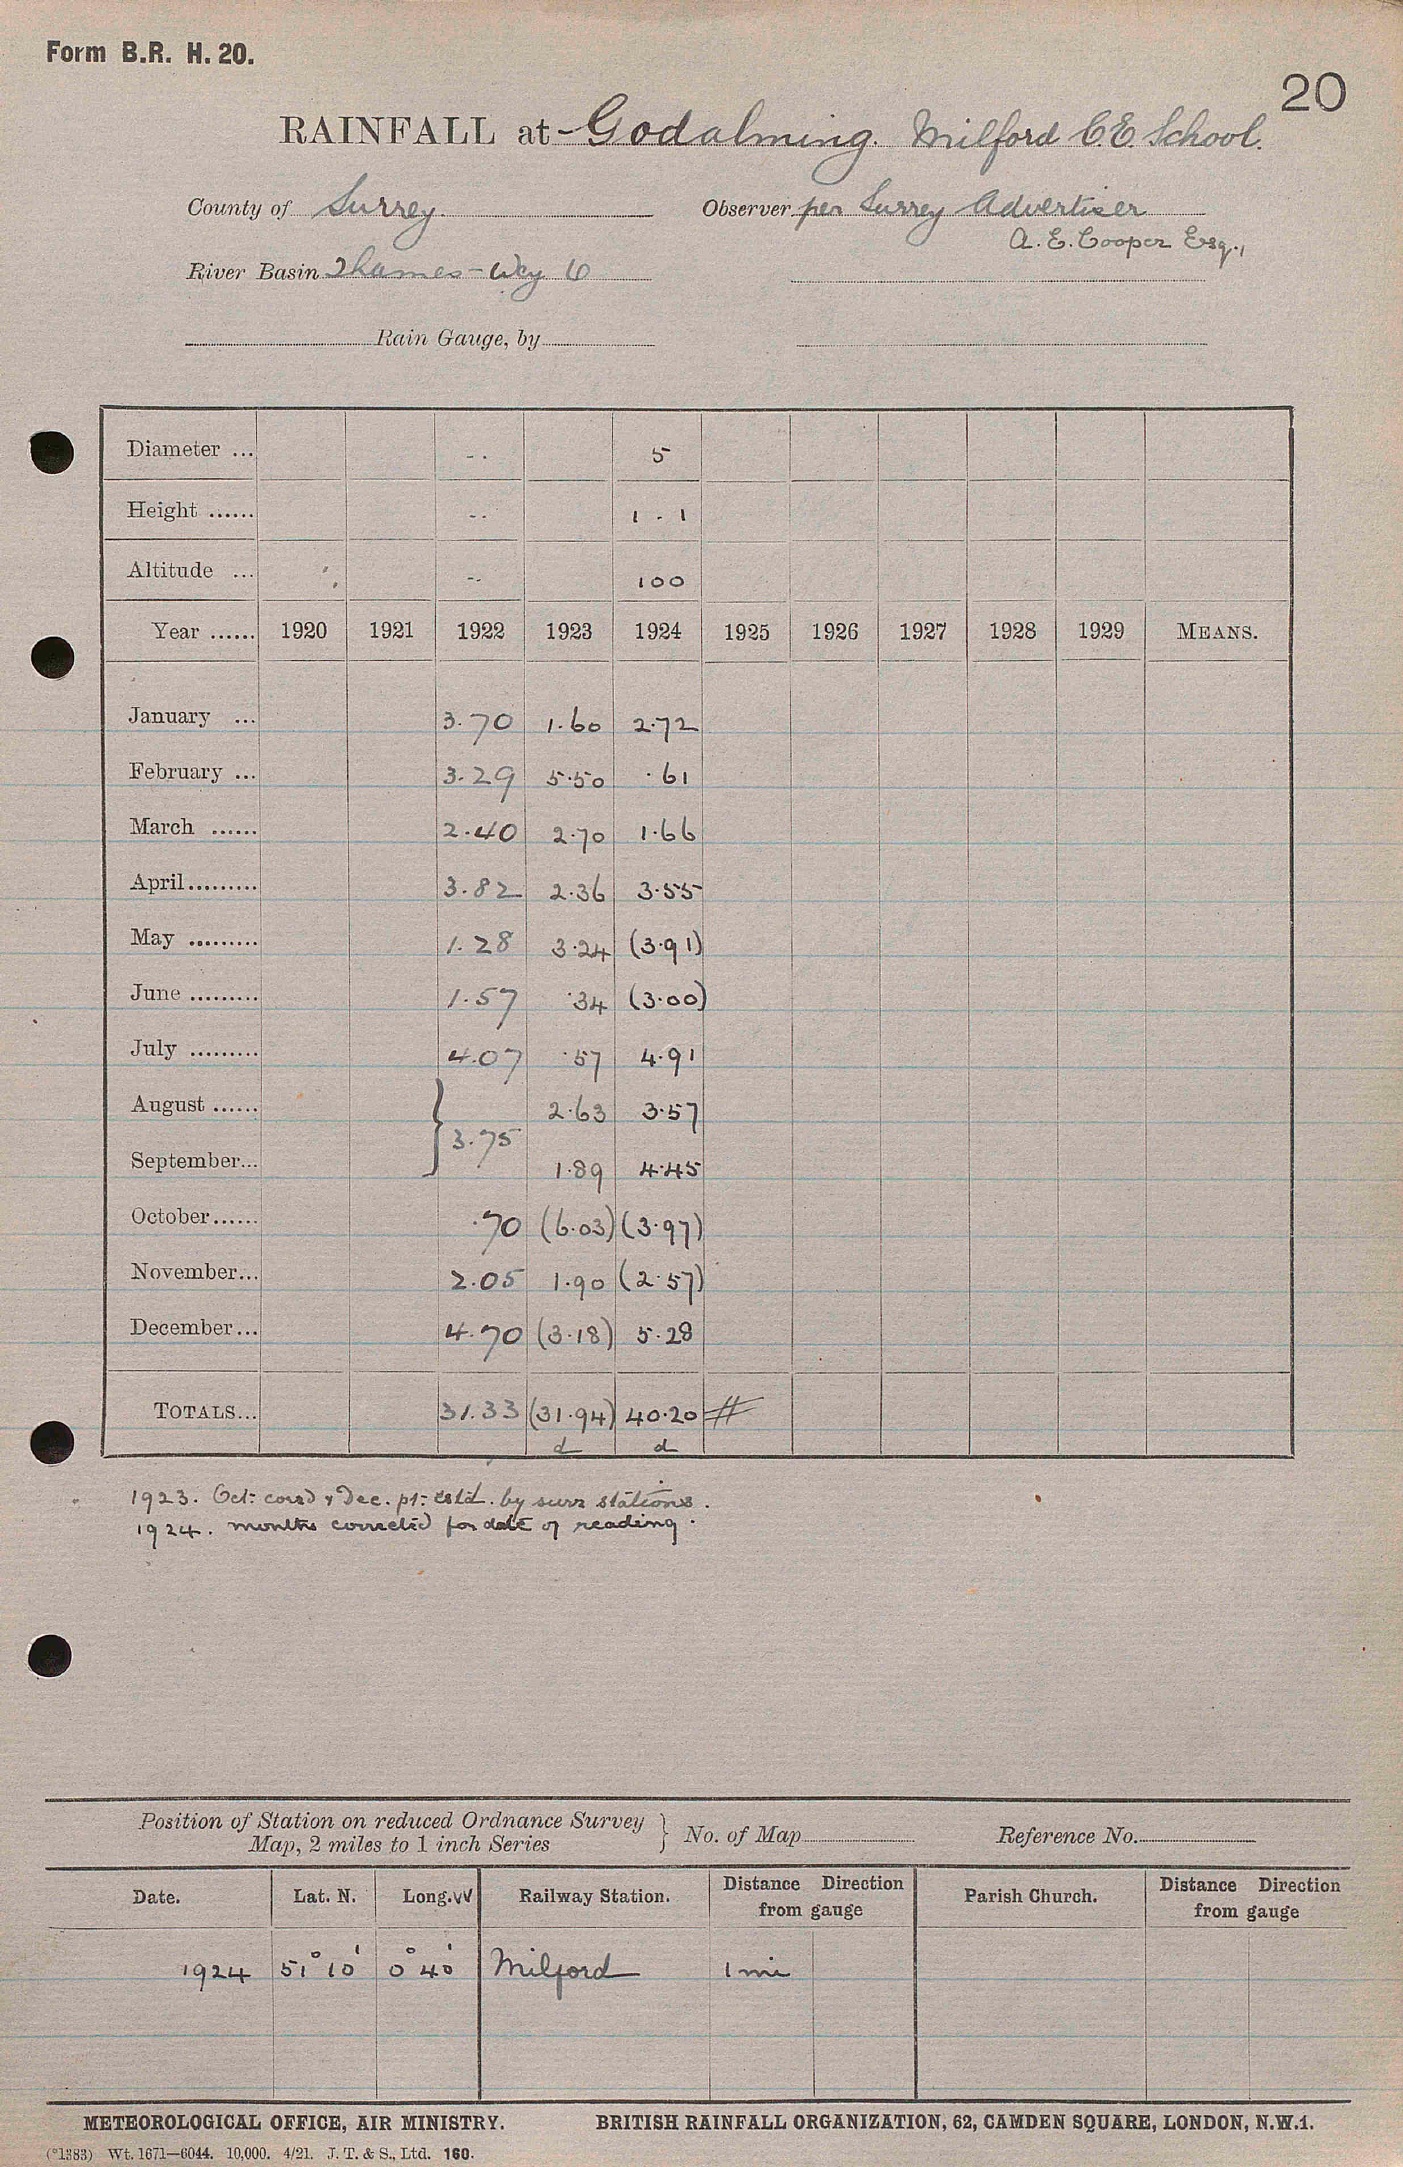 Form B.R. H. 20.
20
RAINFALL at Godalming. Milford C.E. School.
County of Surrey. Observer per Surrey Advertiser
A. E. Cooper Esq.,
River Basin Thames - Wey 6
Rain Gauge, by
Diameter ... -- 5
Height ...... -- 1 - 1
Altitude ... -- 100
Year ...... 1920 1921 1922 1923 1924 1925 1926 1927 1928 1929 MEANS.
January ... 3.70 1.60 2.72
February ... 3.29 5.50 .61
March ...... 2.40 2.70 1.66
April ......... 3.82 2.36 3.55
May ......... 1.28 3.24 (3.91)
June ......... 1.57 .34 (3.00)
July ......... 4.07 .57 4.91
August ...... } 2.63 3.57
3.75
September... 1.89 4.45
October...... .70 (6.03) (3.97)
November... 2.05 1.90 (2.57)
December... 4.70 (3.18) 5.28
TOTALS... 31.33 (31.94) 40.20 #
d d
1923. Oct: corrd & Dec. pt: estd. by surr stations.
1924. months corrected for date of reading.
Position of Station on reduced Ordnance Survey
Map, 2 miles to 1 inch Series } No. of Map Reference No.
Date. Lat. N. Long. W Railway Station. Distance Direction from gauge Parish Church. Distance Direction from gauge
1924 51° 10' 0° 40' Milford 1 mi
METEOROLOGICAL OFFICE, AIR MINISTRY. BRITISH RAINFALL ORGANIZATION, 62, CAMDEN SQUARE, LONDON, N.W.1.
(°1383) Wt. 1671—6044. 10,000. 4/21. J. T. & S., Ltd. 160.